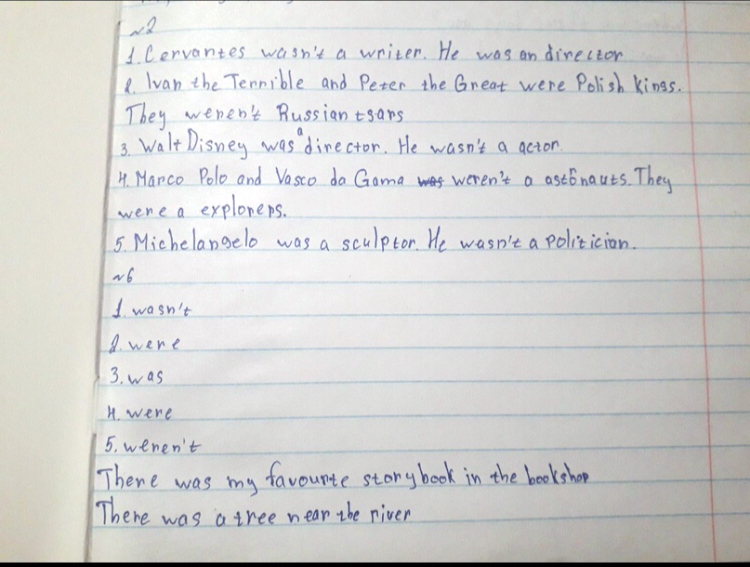 №2
1. Cervantes wasn't a writer. He was an director
2. Ivan the Terrible and Peter the Great were Polish kings.
They weren't Russian tsars
3. Walt Disney was a director. He wasn't a actor.
4. Marco Polo and Vasco da Gama was weren't a astónauts. They
were a explorers.
5. Michelangelo was a sculptor. He wasn't a politician.
№6
1. wasn't
2. were
3. was
4. were
5. weren't
There was my favourite storybook in the bookshop
There was a tree near the river